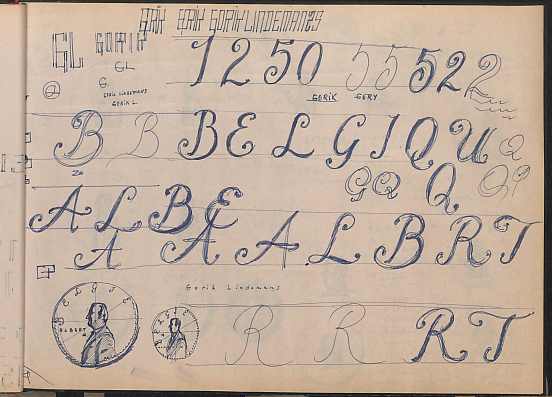 GORIK GORIK GORIK LINDEMANS
GL GORIK
GL
G
GORIK LINDEMANS
GORIK L.
1250 55 522
GORIK GORY
B B BELGIQU Q
GQ Q Q
ALBE
A A A LBRT
Gorik Lindemans
BELGIE
ALBERT
BELGIE
R R RT